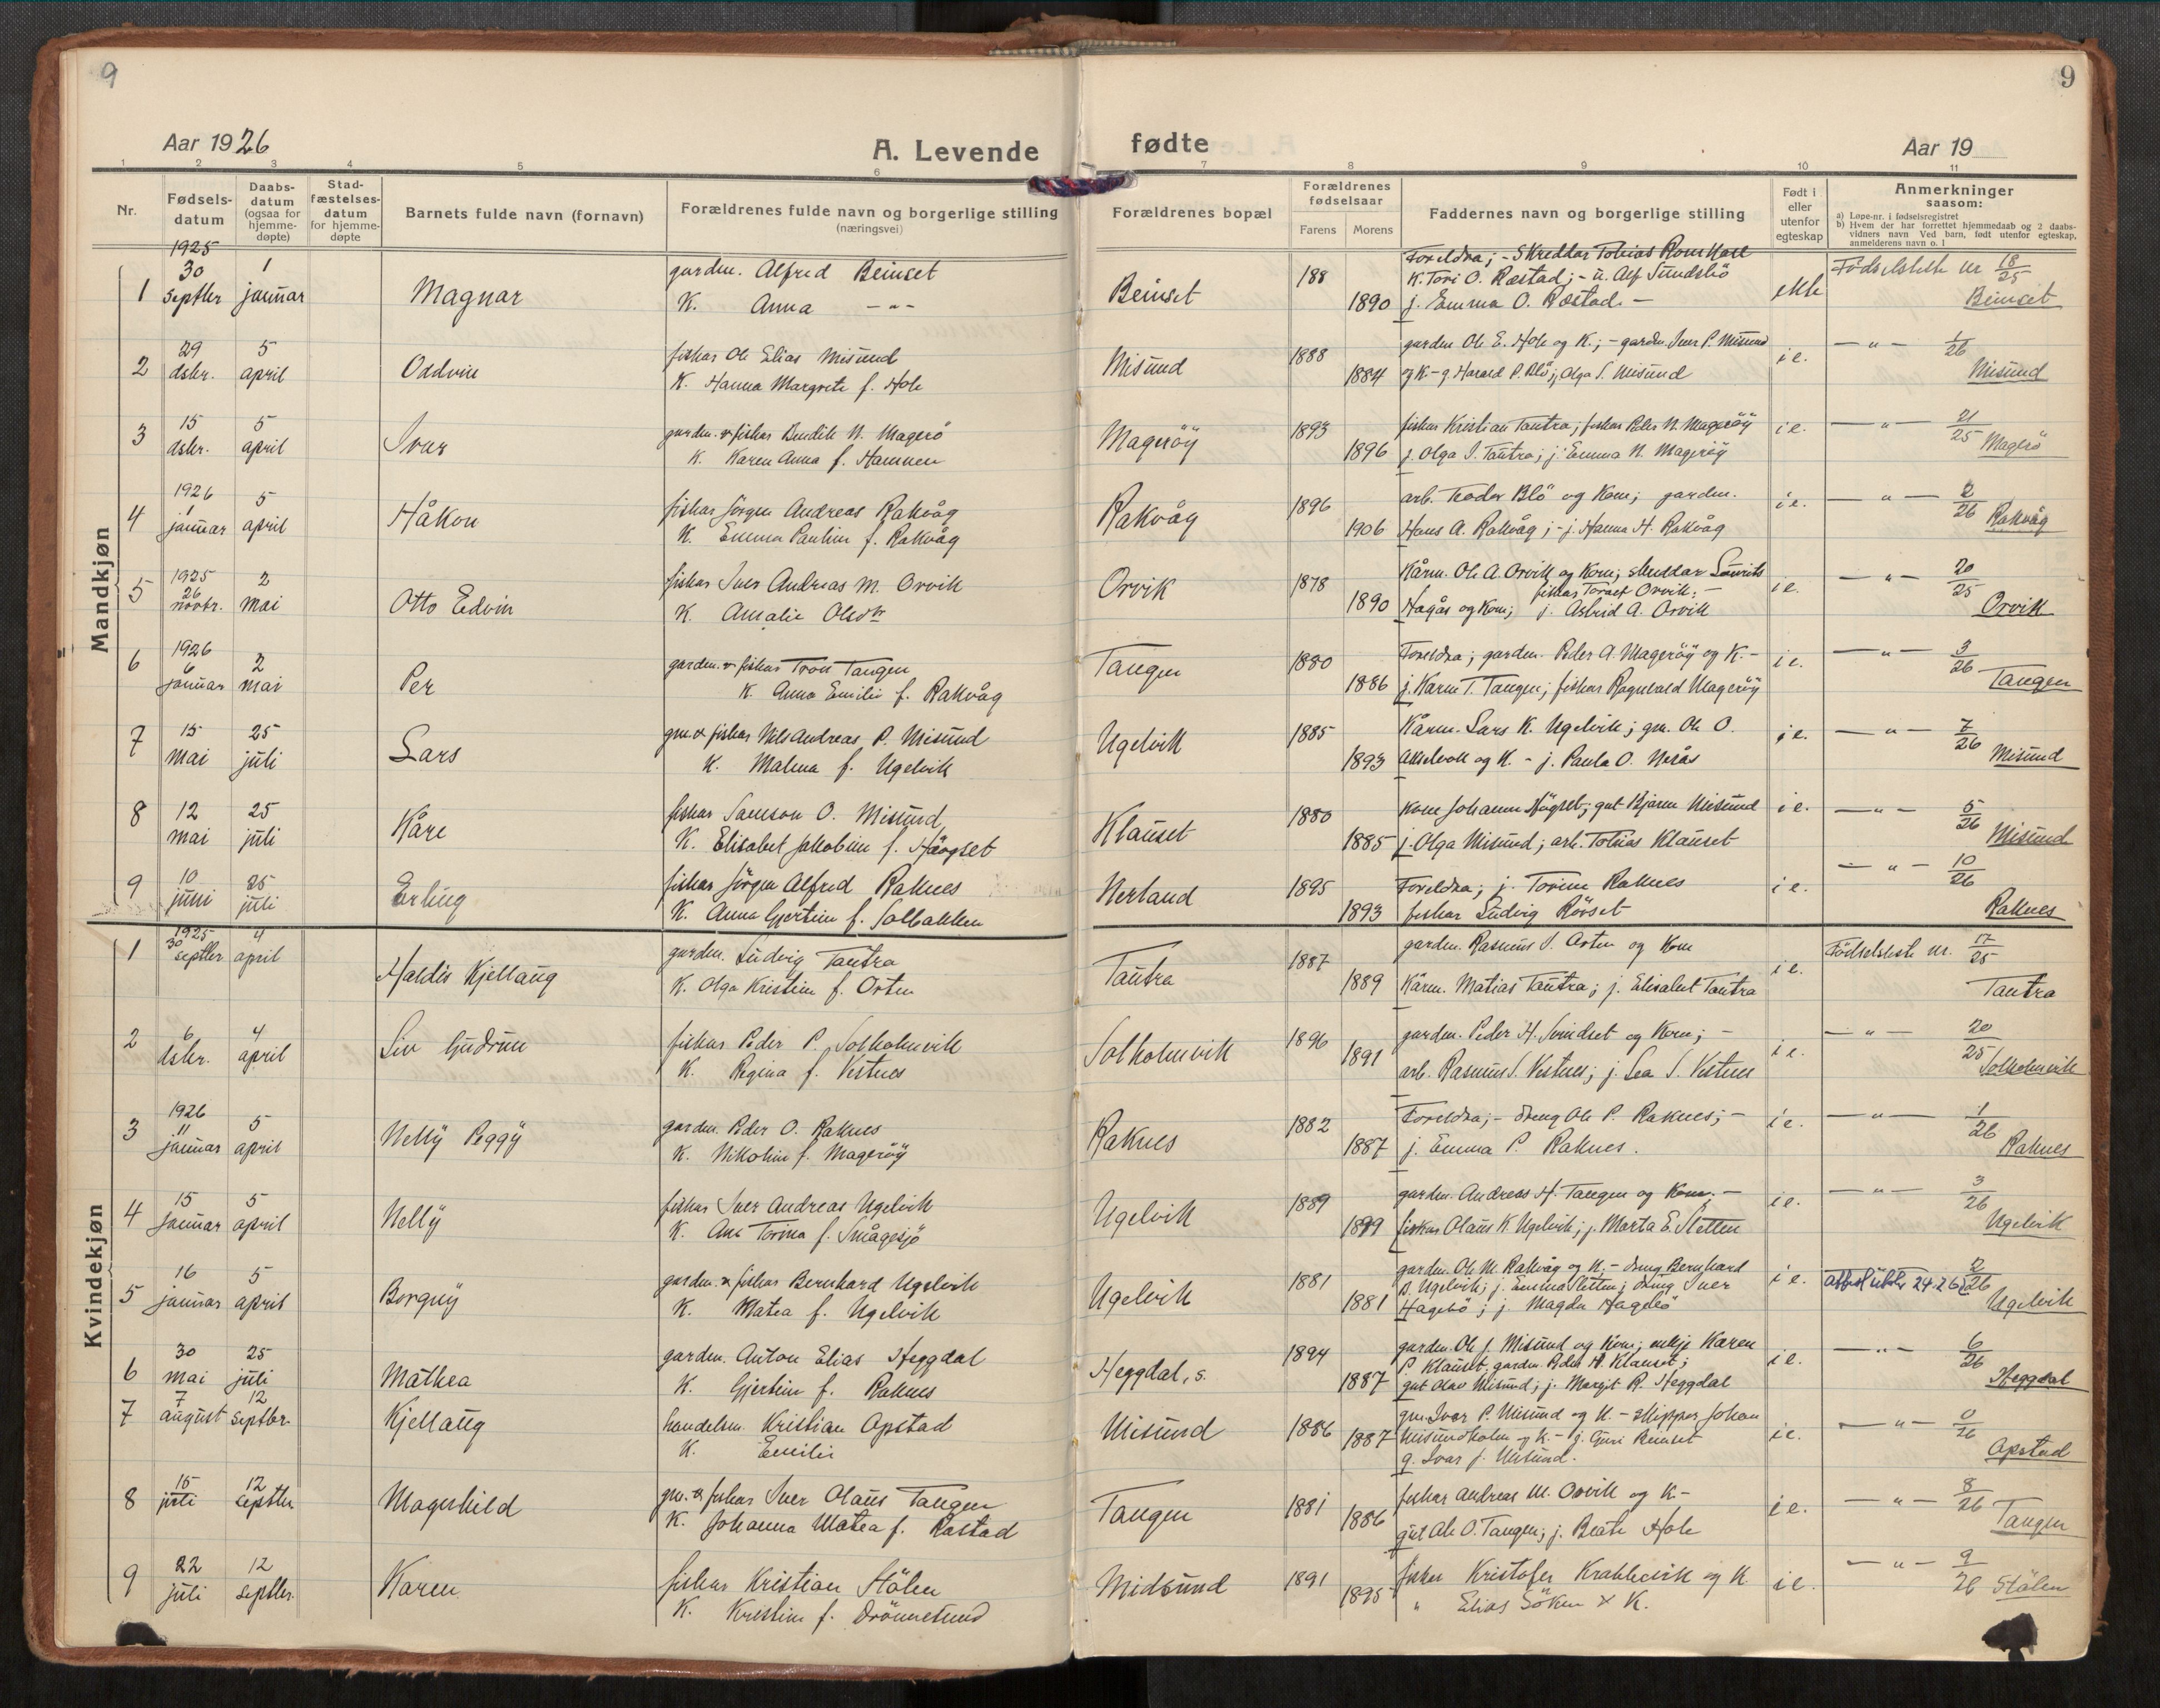 9
9
Aar 1926
A. Levende
fødte
Aar 19
1 2 3 4 5 6 7 8 9 10 11
Nr.
Fødsels-
datum
Daabs-
datum
(ogsaa for
hjemme-
døpte)
Stad-
fæstelses-
datum
for hjemme-
døpte
Barnets fulde navn (fornavn)
Forældrenes fulde navn og borgerlige stilling
(næringsvei)
Forældrenes bopæl
Forældrenes
fødselsaar
Farens Morens
Faddernes navn og borgerlige stilling
Født i
eller
utenfor
egteskap
Anmerkninger
saasom:
a) Løpe-nr. i fødselsregistret
b) Hvem der har forrettet hjemmedaab og 2 daabs-
vidners navn Ved barn, født utenfor egteskap,
anmelderens navn o. l
Mandkjøn
1925
1 30 septber 1 januar Magnar
gardm. Alfred Beinset
K. Anna — " —
Beinset 188 1890
Foreldra; - Skreddar Tobias
K. Tori O.Ræstad; - u. Alf Sundsbö
j. Emma O. Ræstad. —
ekte Fødselsliste nr 18/25
Beinset
2 29 dsbr. 5 april Oddvin
fiskar Ole Elias Misund
K. Hanna Margrete f. Hole
Misund 1888 1884
gardm Ole E. Hole og K.; - gardm. Iver P. Misund
og K - g. Harald P. Blö; Olga S. Misund
i e. — " — 1/26
Misund
3 15 dsbr. 5 april Ivar
gardm. & fiskar Bendik N. Magerö
K. Karen Anna f. Hammen
Mageröy 1893 1896
fiskar Kristian Tautra; fiskar Peder N. Mageröy
j. Olga I. Tautra; j. Emma N. Magerøy
i e. — " — 21/25 Magerö
1926
4 1 januar 5 april Håkon
fiskar Jörgen Andreas Rakvåg
K. Emma Pauline f. Rakvåg
Rakvåg 1896 1906
arb. Teodor Blö og Kom; gardm.
Hans A. Rakvåg; - j. Hanna H. Rakvåg
i e. — " — 2/26 Rakvåg
1925
5 26 novbr. 2 mai Otto Edvin
fiskar Iver Andreas M. Orvik
K. Amalie Olsdtr
Orvik 1878 1890
Kårm. Ole A. Orvik og Kom; skreddar Laurits
fiskar Toralf Orvik; -
Hagås og Kom; j. Astrid A. Orvik
i e. — " — 20/25
Orvik
1926
6 6 januar 2 mai Per
gardm. & fiskar Tron Tangen
K. Anna Emilie f. Rakvåg
Tangen 1880 1886
Foreldra; gardm. Peder A. Magerøy og K. -
j. Karen T. Tangen; fiskar Ragnvald Magerøy
i e. — " — 3/26
Tangen
7 15 mai 25 juli Lars
gm. & fiskar Nils Andreas P. Misund
K. Malena f. Ugelvik
Ugelvik 1885 1893
Kårm. Lars K. Ugelvik; gm. Ole O.
Akselvoll og K. - j. Paula O. Nerås
i e. — " — 7/26
Misund
8 12 mai 25 juli Kåre
fiskar Samson O. Misund
K. Elisabet Jakobine f. Haugset
Klauset 1880 1885
Kom Johanne Haugset; gut Bjarne Misund
j. Olga Misund; arb. Tobias Klauset
i e. — " — 5/26
Misund
9 10 juni 25 juli Erling
fiskar Jörgen Alfred Raknes
K. Anna Gjertine f. Solbakken
Nerland 1895 1893
Foreldra; j. Torine Raknes
fiskar Ludvig Rösset
i e. — " — 10/26
Raknes
Kvindekjøn
1925
1 30 septber 4 april Haldis Kjellaug
gardm. Ludvig Tautra
K. Olga Kristine f. Orten
Tautra 1887 1889
gardm. Rasmus S. Orten og Kom
Kårm. Matias Tautra; j. Elisabet Tautra
i e. Fødselsliste nr. 17/25
Tautra
2 6 dsbr. 4 april Liv Gudrun
fiskar Peder P. Solholmvik
K. Regina f. Vestnes
Solholmvik 1896 1891
gardm. Peder H. Svindset og Kom; -
arb. Rasmus S. Vestnes; j. Lea S. Vestnes
i e. — " — 20/25 Solholmvik
1926
3 11 januar 5 april Nelly Peggy
gardm. Peder O. Raknes
K. Nikoline f. Magerøy
Raknes 1882 1887
Foreldra; - dreng Ole P. Raknes; -
j. Emma P. Raknes.
i e. — " — 1/26
Raknes
4 15 januar 5 april Nelly
fiskar Iver Andreas Ugelvik
K. Ane Torina f. Smågesjö
Ugelvik 1889 1899
gardm. Andreas H. Tangen og Kom; -
fiskar Olaus K. Ugelvik; j. Marta E. Sletten
i e. — " — 3/26
Ugelvik
5 16 januar 5 april Borguy
gardm. & fiskar Bernhard Ugelvik
K. Matea f. Ugelvik
Ugelvik 1881 1881
gardm. Ole M. Rakvåg og K. - dreng Bernhard
B. Ugelvik; j. Emma Sletten; dreng Iver
Hagebö; j. Magda Hagebö
i e. 24.26 2/26
Ugelvik
6 30 mai 25 juli Mathea
gardm. Anton Elias Heggdal
K. Gjertine f. Raknes
Heggdal, s. 1894 1887
gardm. Ole J. Misund og Kom; enkje Karen
P. Klauset; gardm. Peder H. Klauset;
gut Olav Misund; j. Margit R. Heggdal
i e. — " — 6/26
Heggdal
7 7 august 12 septber. Kjellaug
handelsm. Kristian Opstad
K. Emilie
Misund 1886 1887
gm. Ivar P. Misund og K. - skipper Johan
Misundholm og K. - j. Guri Beinset
g. Ivar J. Misund.
i e. — " — 0/26
Opstad
8 15 juli 12 septber Magnhild
gm. & fiskar Iver Olaus Tangen
K. Johanna Matea f. Rastad
Tangen 1881 1886
fiskar Andreas M. Orvik og K -
gut Ole O. Tangen; j. Beate Hole
i e. — " — 8/26
Tangen
9 22 juli 12 septber. Karen
fiskar Kristian Stålen
K. Kristine f. Drönnesund
Midsund 1891 1895
fiskar Kristofer Krakkevik og K
" Elias Söken & K.
i e. — " — 9/26 Stålen